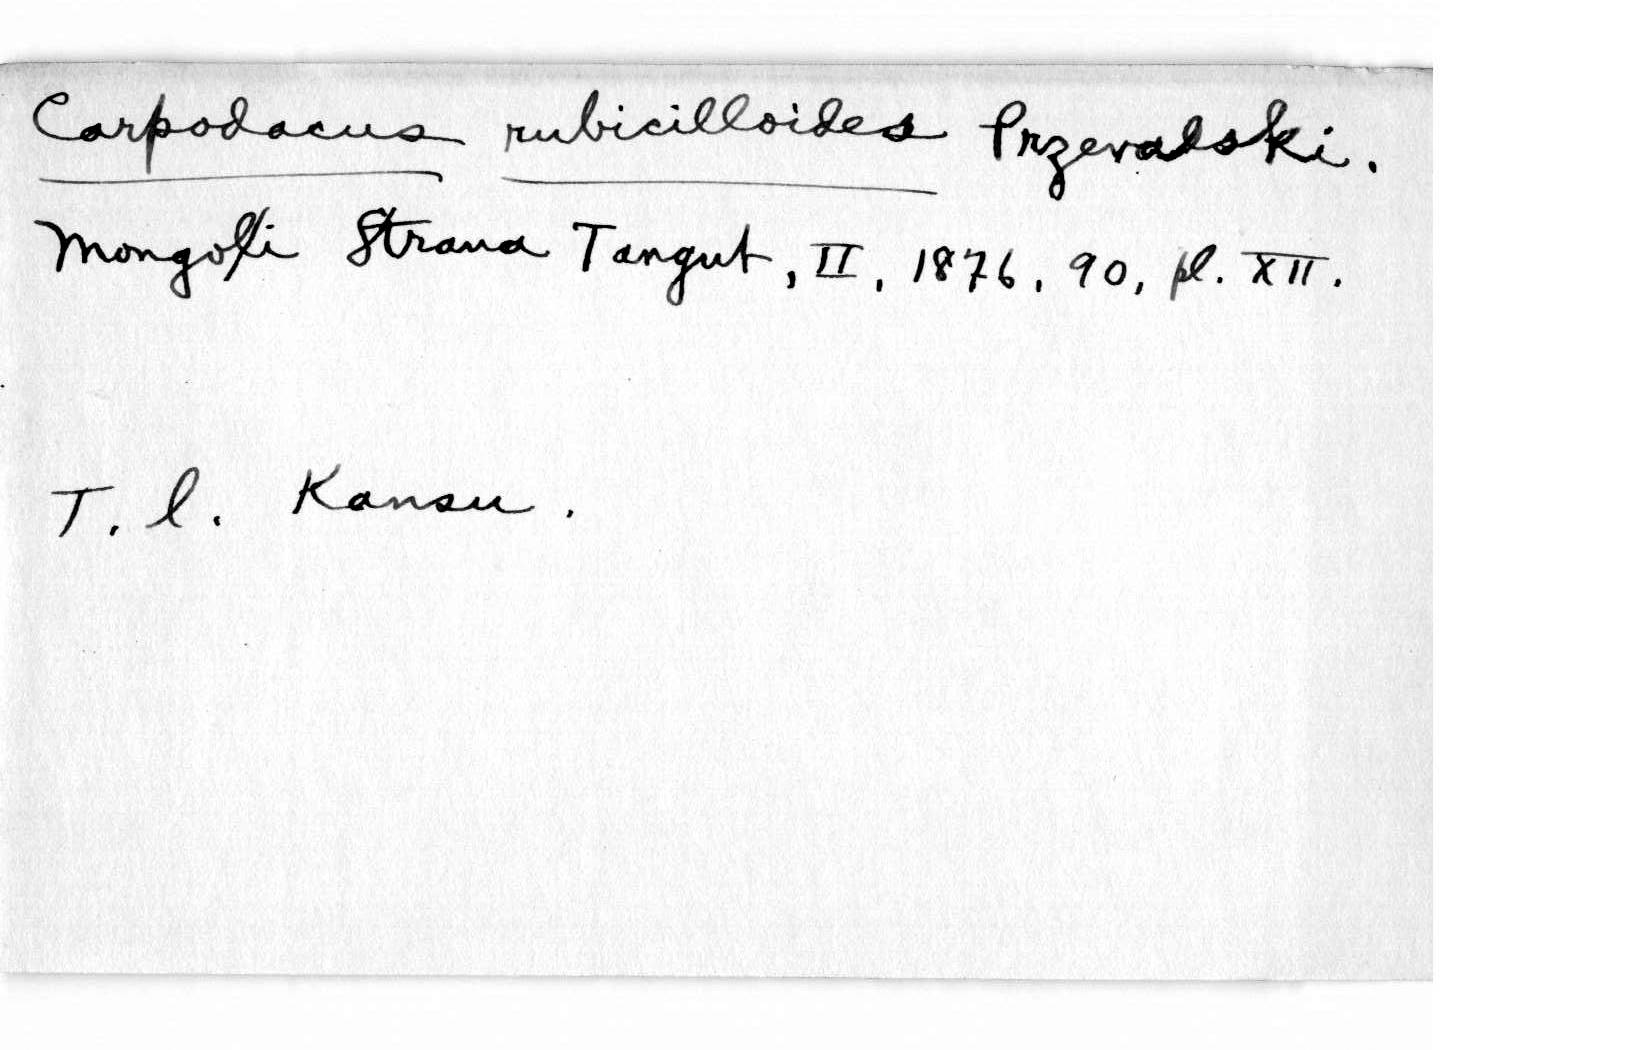 Carpodacus rubicilloides Przevalski.
Mongoli Strana Tangut, II, 1876, 90, pl. XII.
T. l. Kansu.